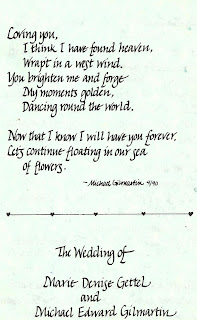 Loving you,
I think I have found heaven,
Wrapt in a west wind.
You brighten me and forge
My moments golden,
Dancing round the world.
Now that I know I will have you forever,
Let's continue floating in our sea
of flowers.
~ Michael Gilmartin 4/90
The Wedding of
Marie Denise Gettel
and
Michael Edward Gilmartin